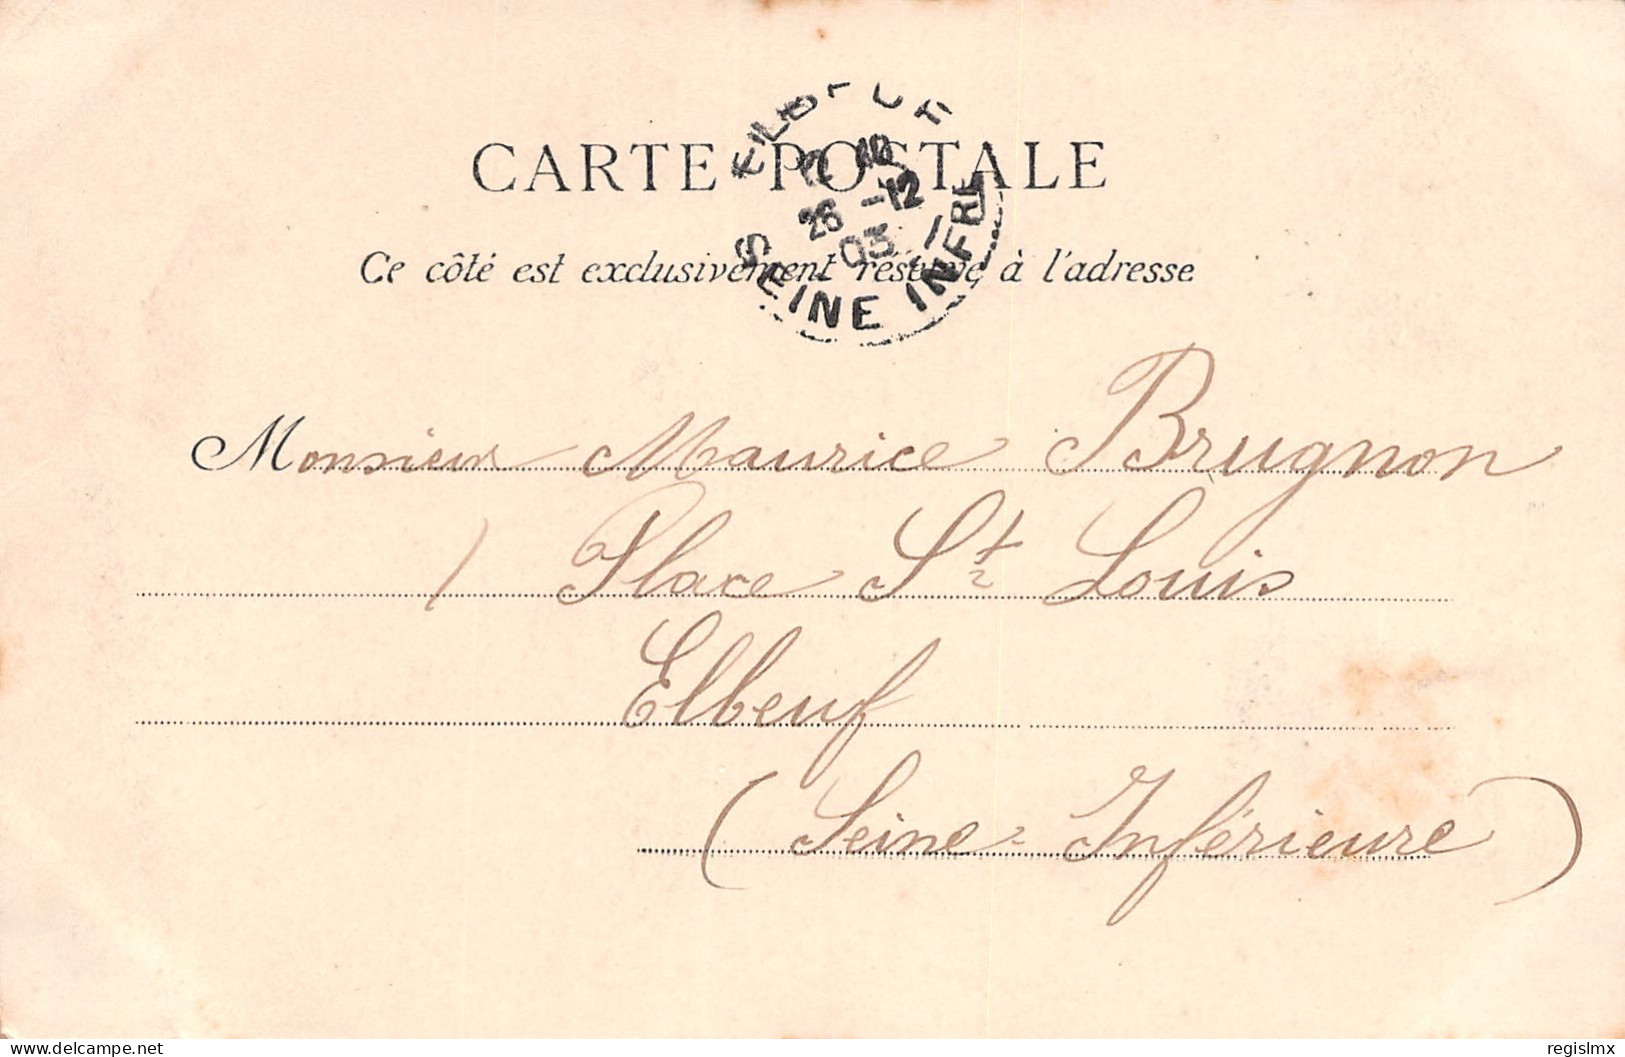 CARTE POSTALE
Ce côté est exclusivement réservé à l'adresse
ELBEUF
26 -12
03
SEINE INFRE
Monsieur Maurice Brugnon
1 Place St Louis
Elbeuf
(Seine-Inférieure)
delcampe.net
regislmx